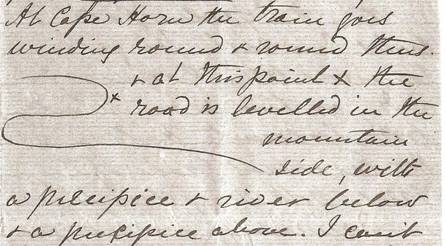 At Cape Horn the train goes
winding round & round thus.
& at this point x the
road is levelled in the
mountain
side, with
a precipice & river below
& a precipice above. I can't